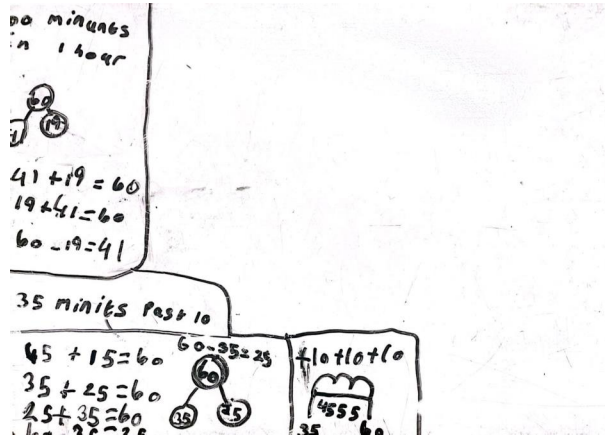 60 minunts
in 1 hour
60
19
41 + 19 = 60
19 + 41 = 60
60 - 19 = 41
35 minits Past 10
60-35=25
45 + 15 = 60
35 + 25 = 60
25 + 35 = 60
60
35
25
+10+10+10
45 55
35 60